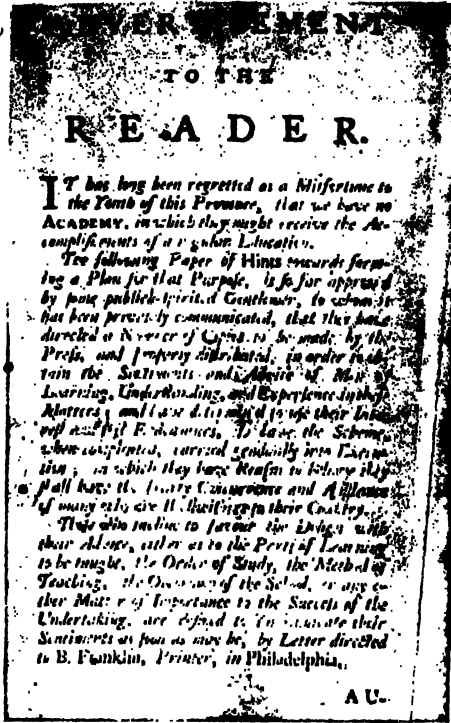 ADVERTISEMENT
TO THE
READER.
IT has long been regretted as a Misfortune to
the Youth of this Province, that we have no
ACADEMY, in which they might receive the Ac-
complishments of a regular Education.
The following Paper of Hints towards form-
ing a Plan for that Purpose, is so far approv'd
by some publick-spirited Gentlemen, to whom it
has been privately communicated, that they have
directed a Number of Copies to be made by the
Press, and properly distributed, in order to ob-
tain the Sentiments and Advice of Men of
Learning, Understanding, and Experience in these
Matters; and have determin'd to use their Inte-
rest and best Endeavours, to have the Scheme,
when compleated, carried gradually into Execu-
tion; in which they have Reason to believe they
shall have the hearty Concurrence and Assistance
of many who are Wellwishers to their Country.
Those who incline to favour the Design with
their Advice, either as to the Parts of Learning
to be taught, the Order of Study, the Method of
Teaching, the Oeconomy of the School, or any o-
ther Matter of Importance to the Success of the
Undertaking, are desired to communicate their
Sentiments as soon as may be, by Letter directed
to B. Franklin, Printer, in Philadelphia.
AU-